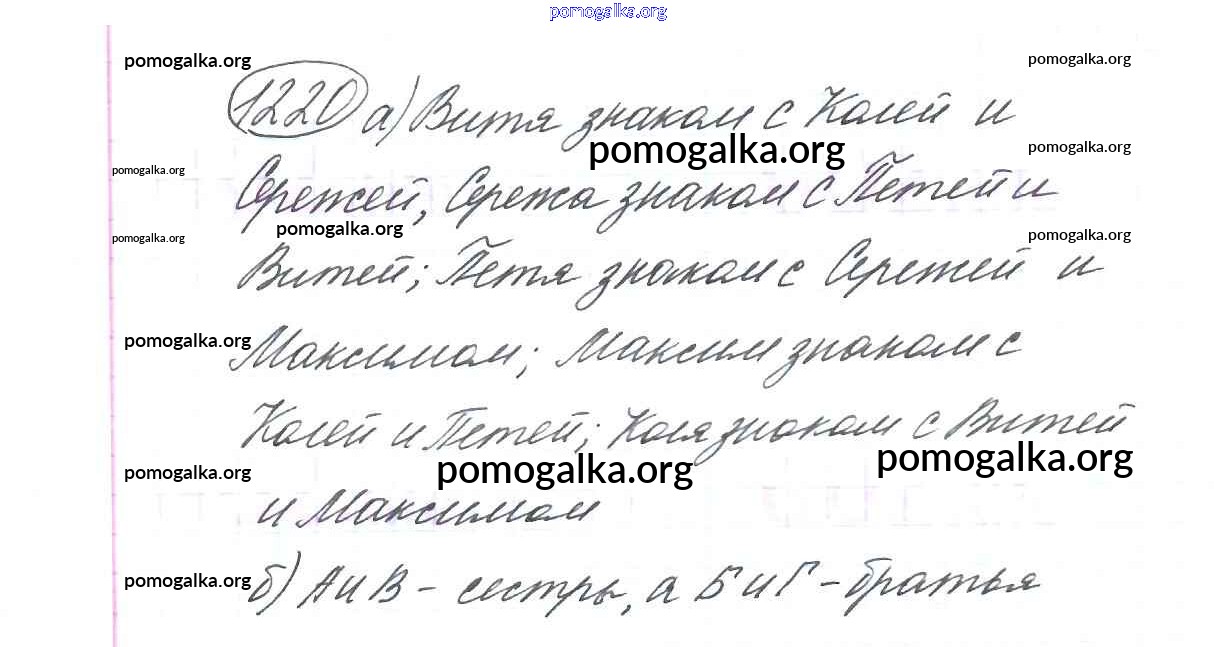 pomogalka.org
pomogalka.org
pomogalka.org
1220 а) Витя знаком с Колей и
pomogalka.org
pomogalka.org
pomogalka.org
Сережей, Сережа знаком с Петей и
pomogalka.org
pomogalka.org
pomogalka.org
Витей; Петя знаком с Сережей и
pomogalka.org
Максимом; Максим знаком с
Колей и Петей; Коля знаком с Витей
pomogalka.org
pomogalka.org
pomogalka.org
и Максимом
pomogalka.org
б) А и В - сестры, а Б и Г - братья